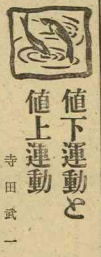 値下運動と
値上運動
寺田武一